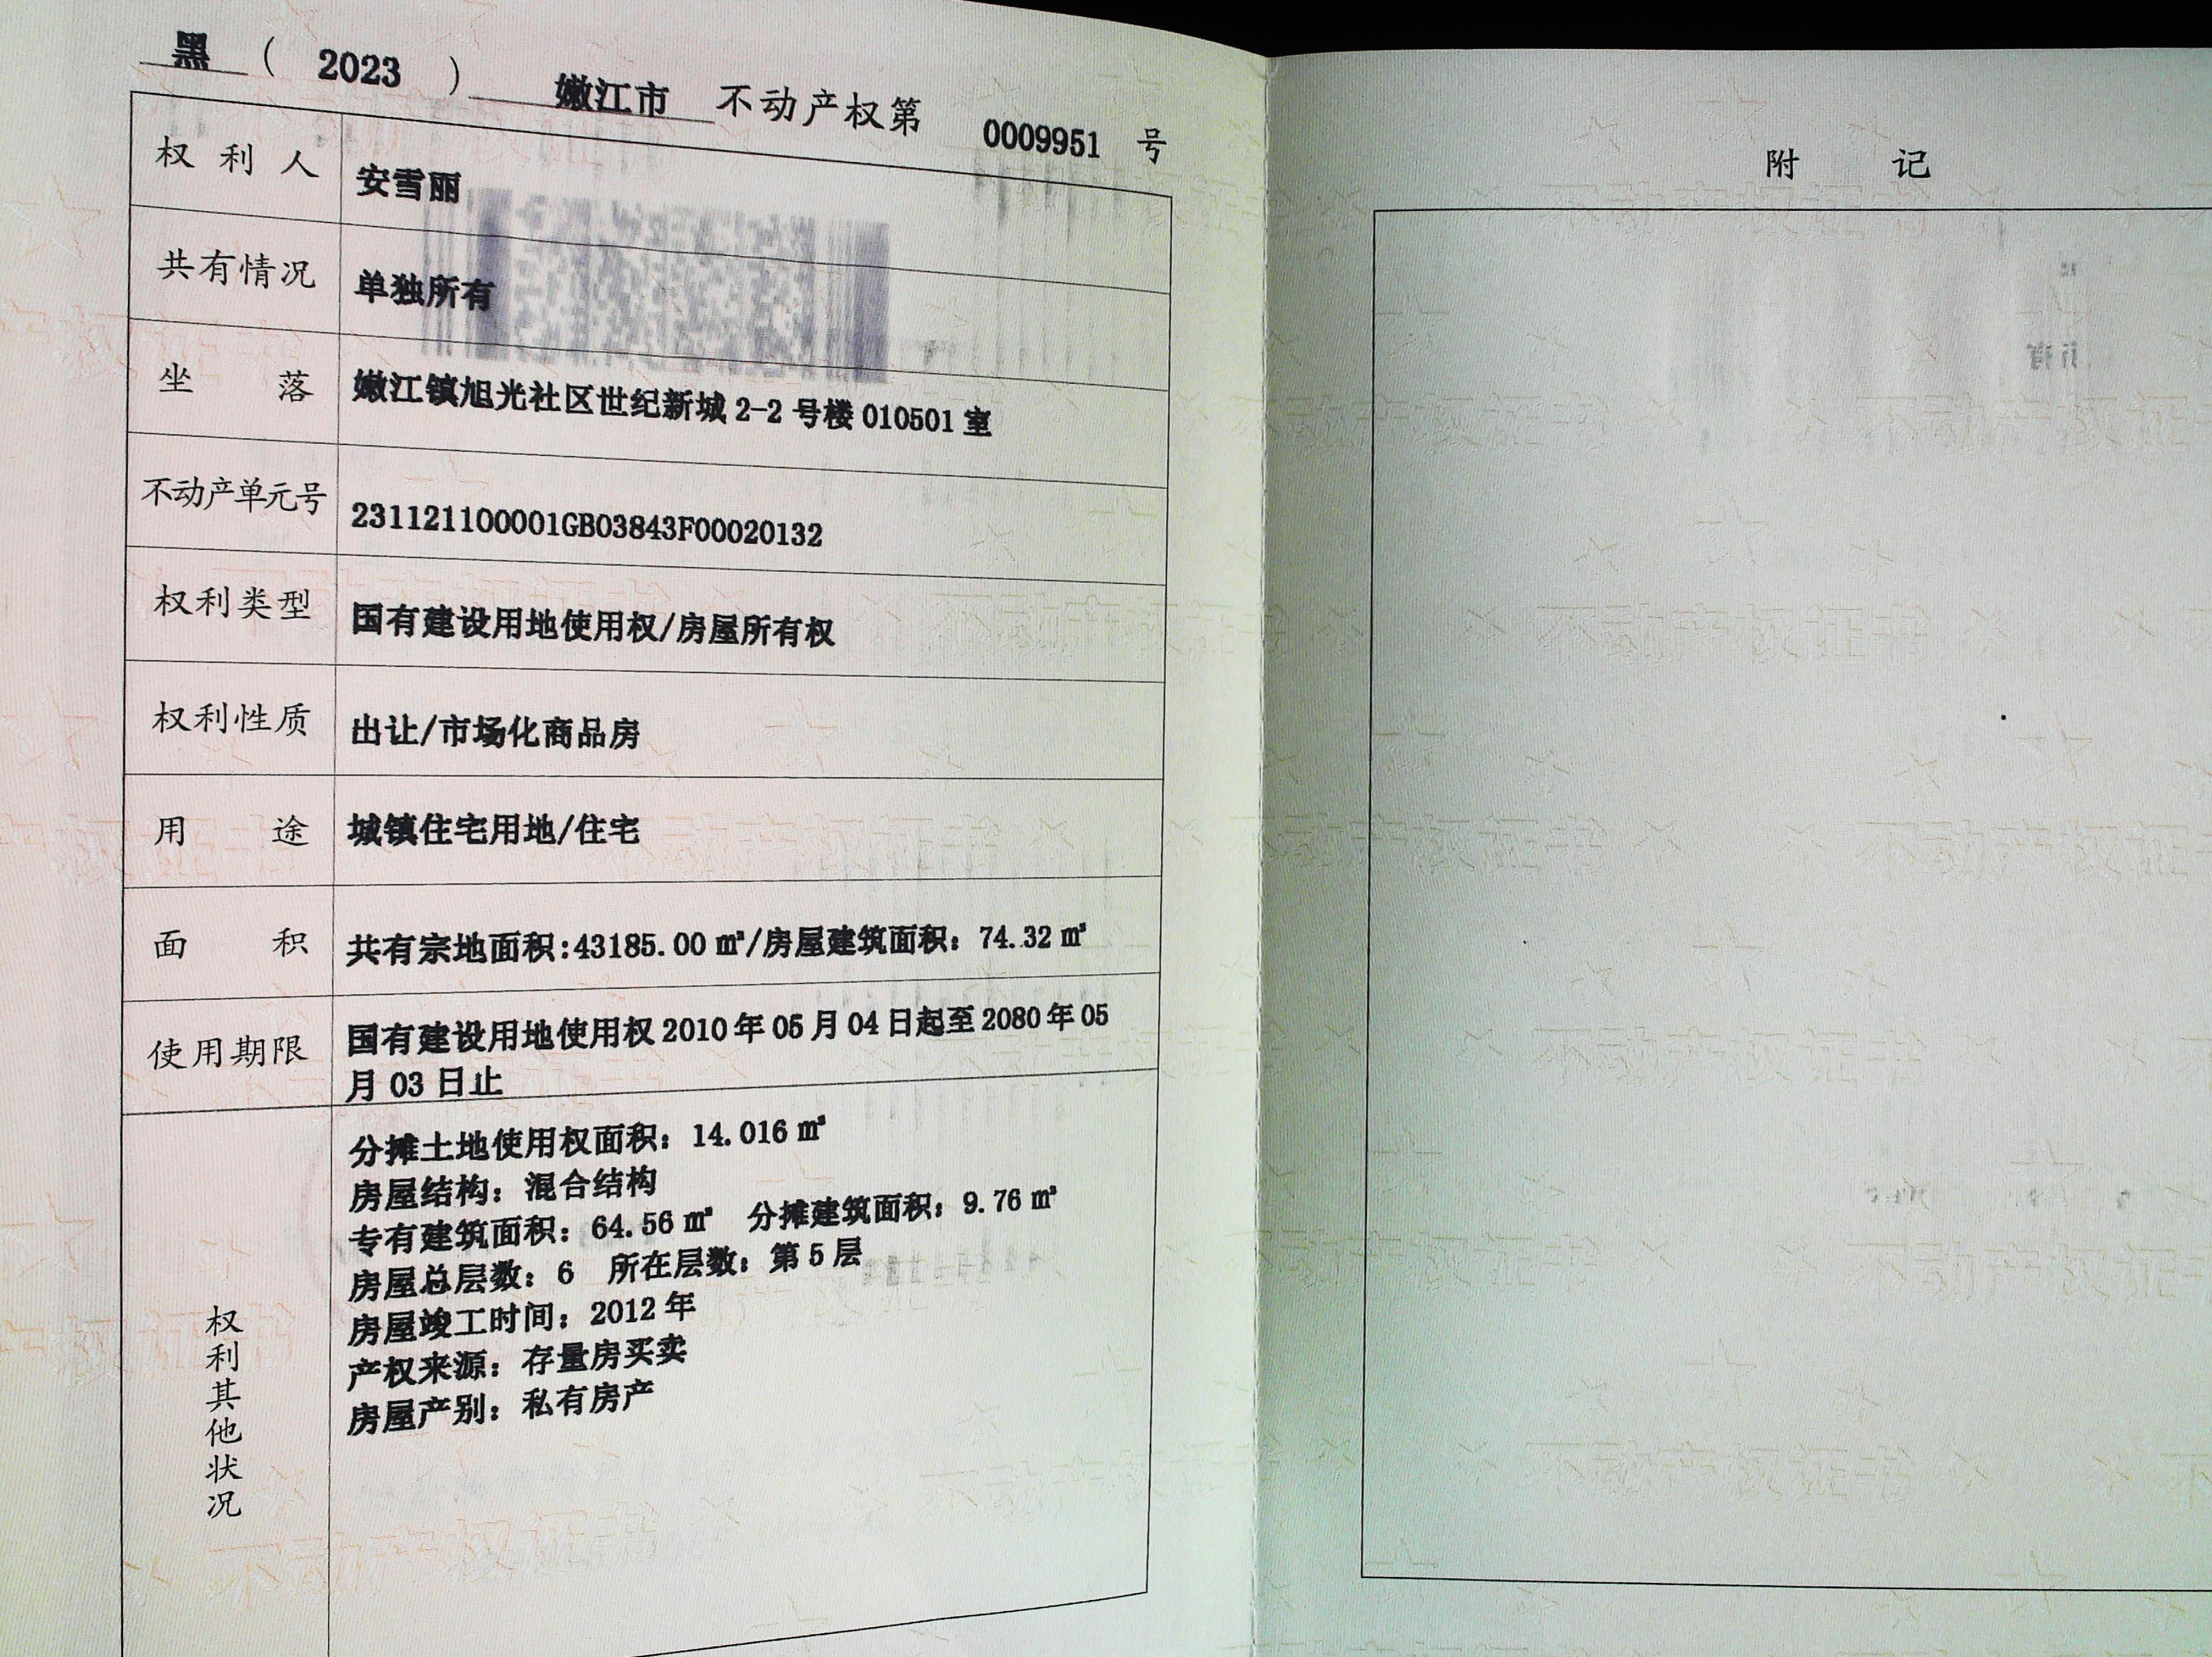 黑 ( 2023 ) 嫩江市 不动产权第 0009951 号
权利人 安雪丽
共有情况 单独所有
坐落 嫩江镇旭光社区世纪新城 2-2 号楼 010501 室
不动产单元号 231121100001GB03843F00020132
权利类型 国有建设用地使用权/房屋所有权
权利性质 出让/市场化商品房
用途 城镇住宅用地/住宅
面积 共有宗地面积:43185.00 ㎡/房屋建筑面积：74.32 ㎡
使用期限 国有建设用地使用权 2010 年 05 月 04 日起至 2080 年 05
月 03 日止
权利其他状况
分摊土地使用权面积：14.016 ㎡
房屋结构：混合结构
专有建筑面积：64.56 ㎡ 分摊建筑面积：9.76 ㎡
房屋总层数：6 所在层数：第 5 层
房屋竣工时间：2012 年
产权来源：存量房买卖
房屋产别：私有房产
附记